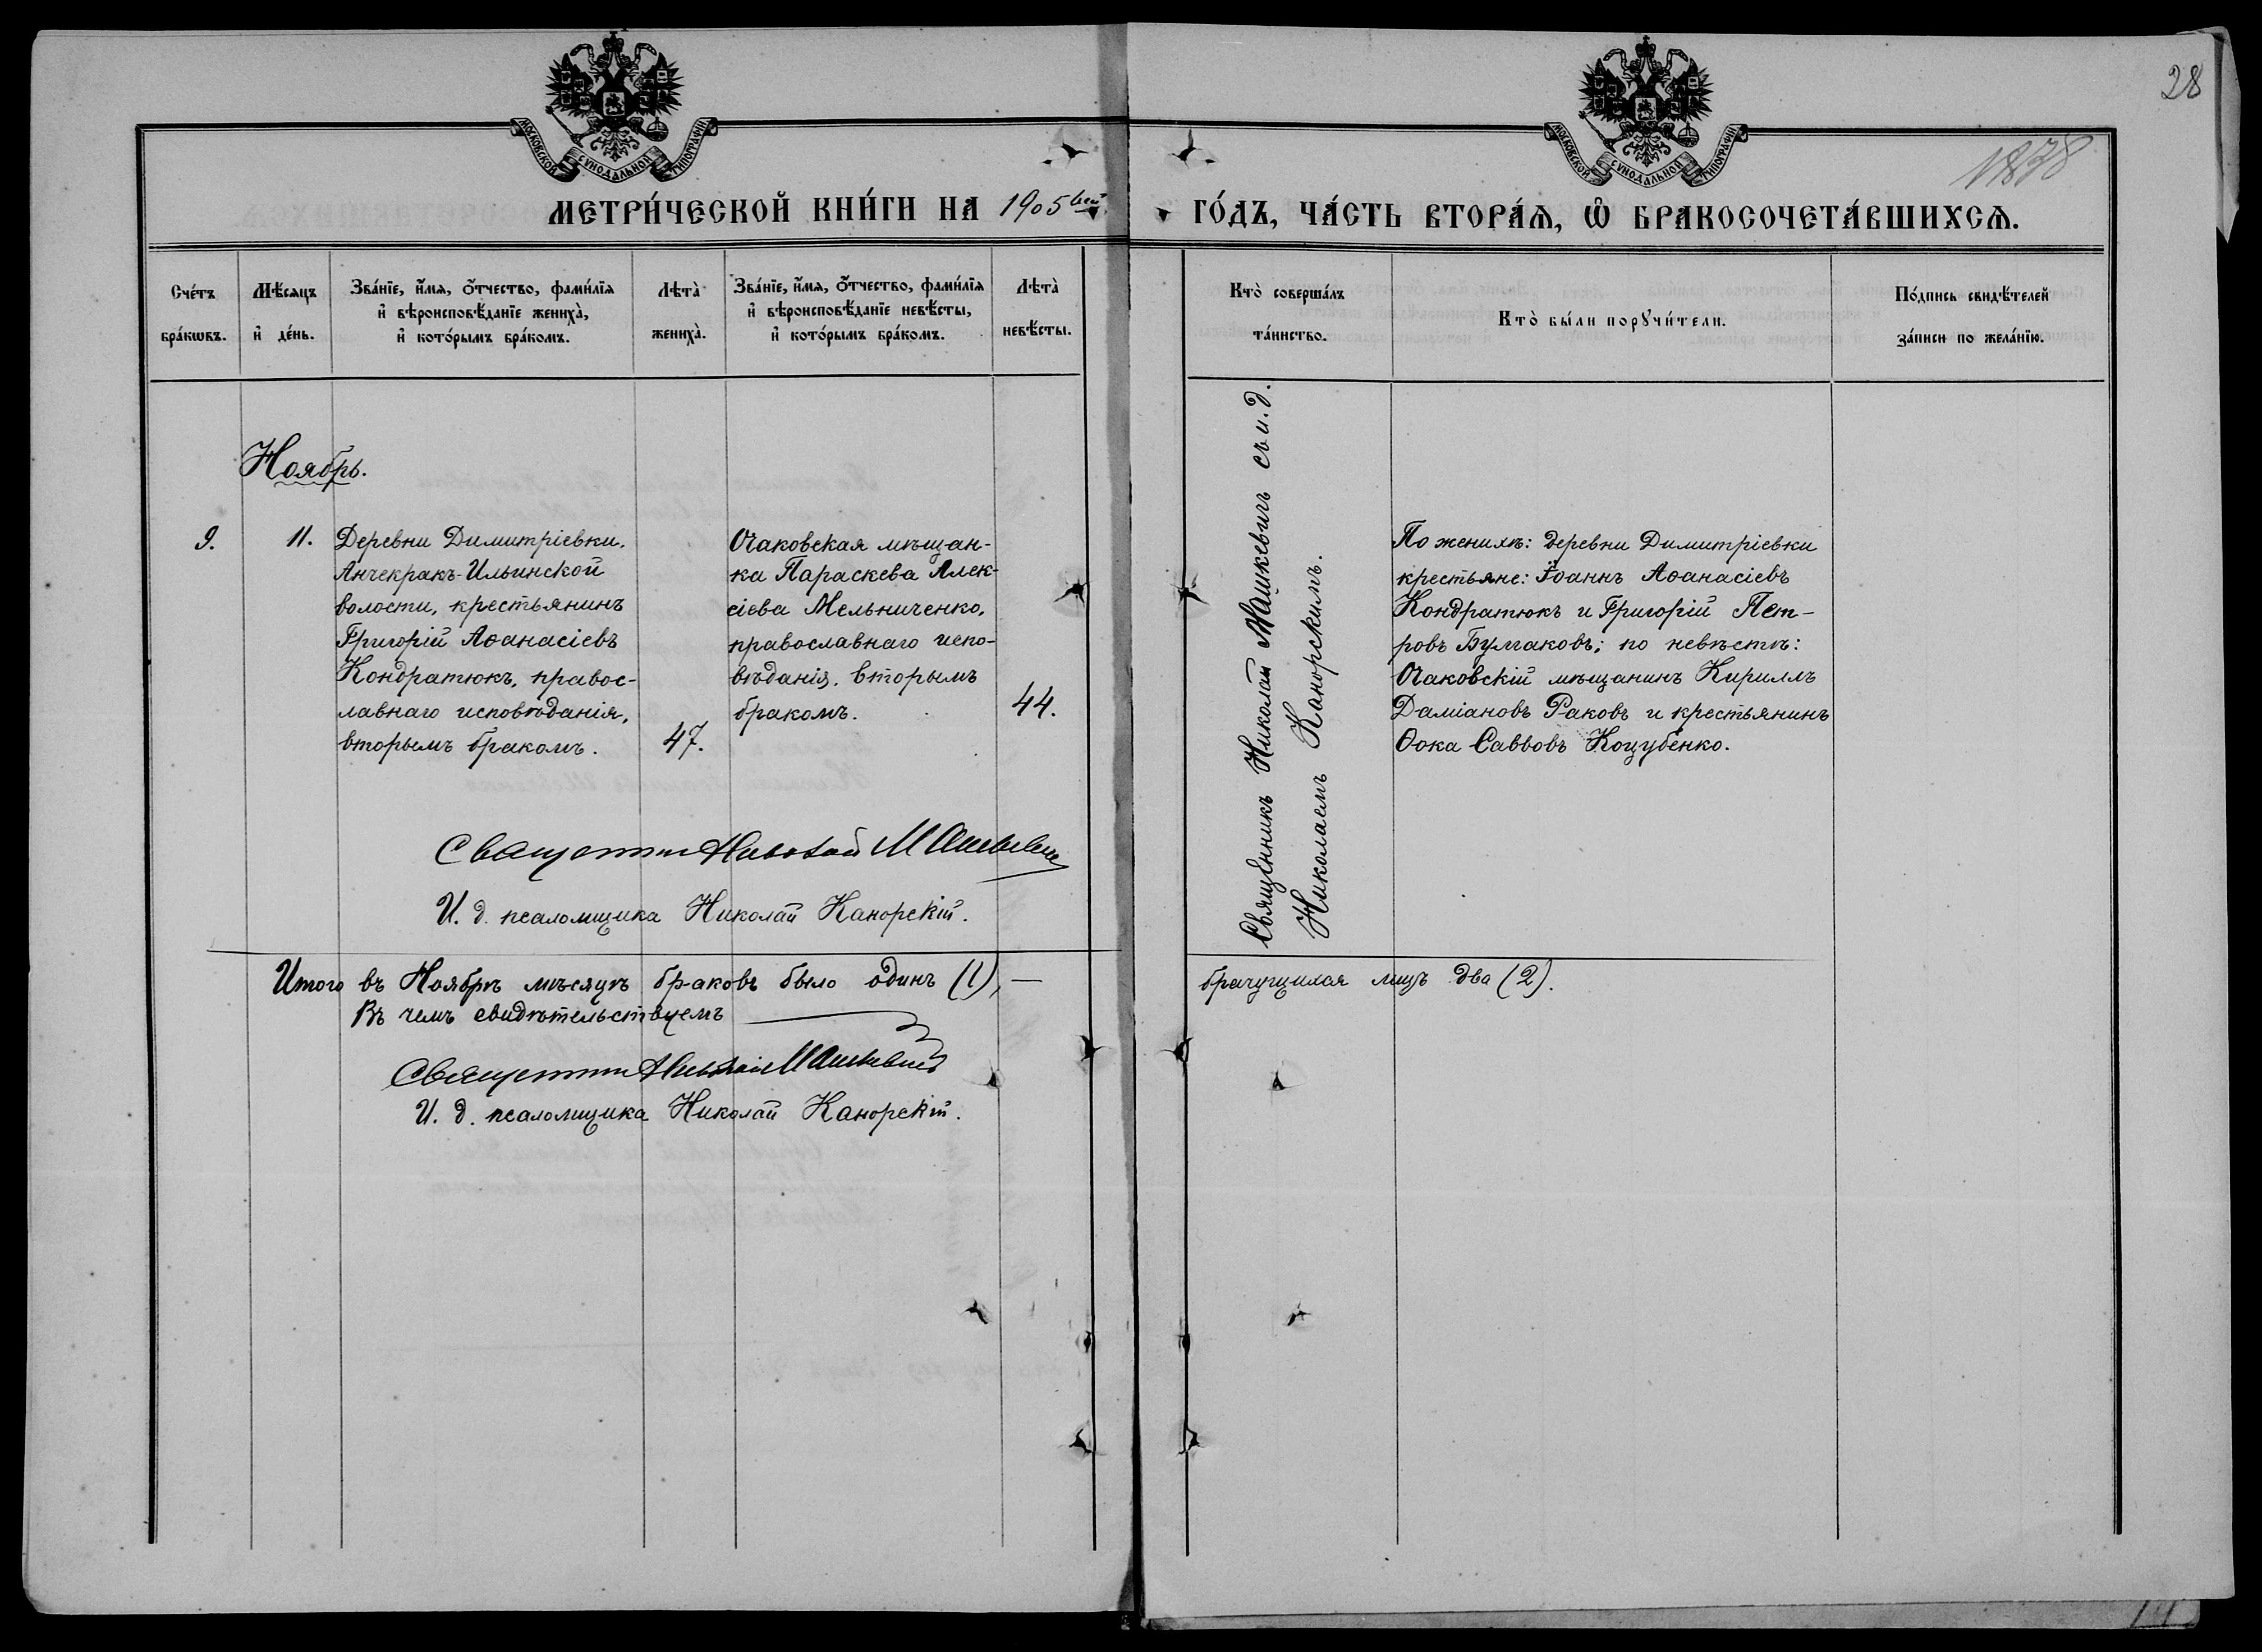 28
1878
МОСКОВСКОЙ СѴНОДАЛЬНОЙ ТИПОГРАФІИ
МОСКОВСКОЙ СѴНОДАЛЬНОЙ ТИПОГРАФІИ
МЕТРИ́ЧЕСКОЙ КНИ́ГИ НА 1905 ый
ГО́ДЪ, ЧА́СТЬ ВТОРА́Ѧ, Ѽ БРАКОСОЧЕТА́ВШИХСѦ.
Сче́тъ
бра́кѡвъ.
Мѣ́сяцъ
и҆ де́нь.
Зва́нїе, и҆́мѧ, ѻ҆́тчество, фами́лїѧ
и҆ вѣроисповѣ́данїе жениха̀,
и҆ кото́рымъ бра́комъ.
Лѣта̀
жениха̀.
Зва́нїе, и҆́мѧ, ѻ҆́тчество, фами́лїѧ
и҆ вѣроисповѣ́данїе невѣ́сты,
и҆ кото́рымъ бра́комъ.
Лѣта̀
невѣ́сты.
Кто̀ соверша́лъ
та́инство.
Кто̀ бы́ли порꙋчи́тели.
По́дпись свидѣ́телей
за́писи по жела́нїю.
Ноябрь.
9.
11.
Деревни Димитріевки,
Анчекракъ-Ильинской
волости, крестьянинъ
Григорій Аѳанасіевъ
Кондратюкъ, правос-
лавнаго исповѣданія,
вторымъ бракомъ.
47.
Очаковская мѣщан-
ка Параскева Алек-
сіева Мельниченко,
православнаго испо-
вѣданія, вторымъ
бракомъ.
44.
Священникъ Николай Машкевичъ съ и. д.
Николаемъ Канорскимъ.
По женихѣ: деревни Димитріевки
крестьяне: Іоаннъ Аѳанасіевъ
Кондратюкъ и Григорій Пет-
ровъ Булгаковъ; по невѣстѣ:
Очаковскій мѣщанинъ Кириллъ
Даміановъ Раковъ и крестьянинъ
Ѳока Саввовъ Коцубенко.
Священникъ Николай Машкевичъ
И. д. псаломщика Николай Канорскій.
Итого въ Ноябрѣ мѣсяцѣ браковъ было одинъ (1), —
брачущихся лицъ два (2).
Въ чемъ свидѣтельствуемъ
Священникъ Николай Машкевичъ
И. д. псаломщика Николай Канорскій.